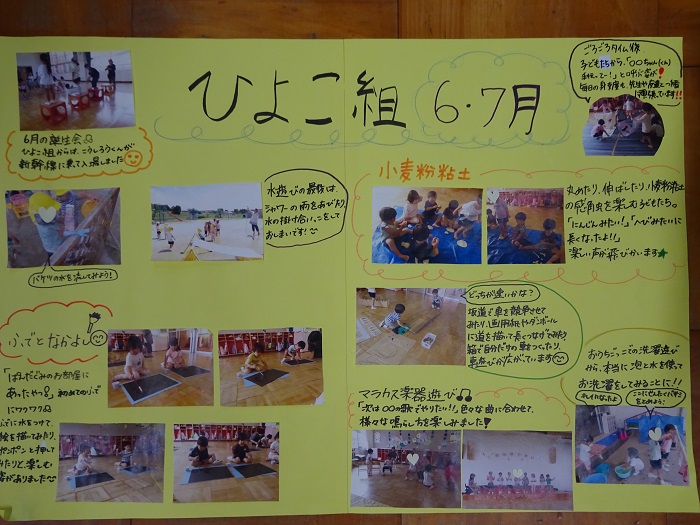 ひよこ組 6・7月
6月の誕生会♫
ひよこ組からは、こうしろうくんが
新幹線に乗て入場しました
バケツの水を流してみよう!
水遊びの最後は、
シャワーの雨を浴びたり
水の掛け合いっこをして
おしまいです!
ごろごろタイム後
子どもたちから、「〇〇ちゃん(くん)
毎日の身支度も
小麦粉粘土
丸めたり、伸ばしたり、小麦粉粘土
の感触を楽しむ子どもたち。
「にんじんみたい!」「へびみたいに
長くなったよ!」
楽しい声が飛びかいます★
どっちが速いかな?
坂道で車を競争させて
みたり、画用紙やダンボール
に道を描いて長くつなげてみたり
箱で自分だけの車をつくったり、
車遊びが広がっています
ふでとなかよし
「ぱんだぐみのお部屋に
あったやつ!」初めてのふで
にワクワク
ふでに水をつけて、
絵を描いてみたり、
ポンポンと押して
みたりと、楽しむ
姿がありました
マラカス楽器遊び♫
「次は〇〇の歌でやりたい!!」色々な曲に合わせて、
様々な鳴らし方を楽しみました!
おうちごっこの洗濯遊び
から、本当に泡と水を使って
お洗濯をしてみることに!!
キレイになったよ